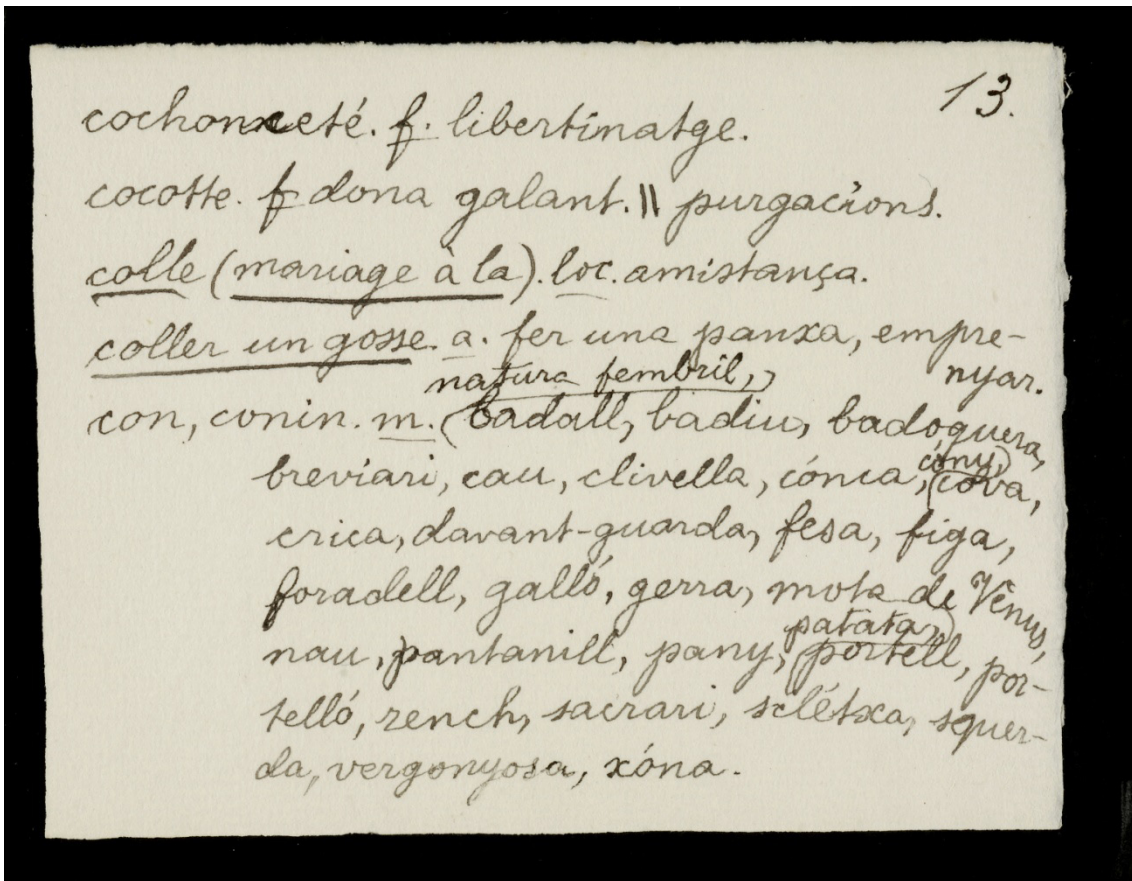 13.
cochonceté. f. libertinatge.
cocotte. f dona galant. || purgacions.
colle (mariage à la). loc. amistança.
coller un gosse. a. fer una panxa, empre-
nyar.
natura fembril,
con, conin. m. badall, badiu, badoquera,
cony,
breviari, cau, clivella, cónca, cova,
crica, davant-guarda, fesa, figa,
foradell, galló, gerra, mota de Vènus,
patata,
nau, pantanill, pany, portell, por-
telló, rench, sacrari, sclétxa, squer-
da, vergonyosa, xóna.